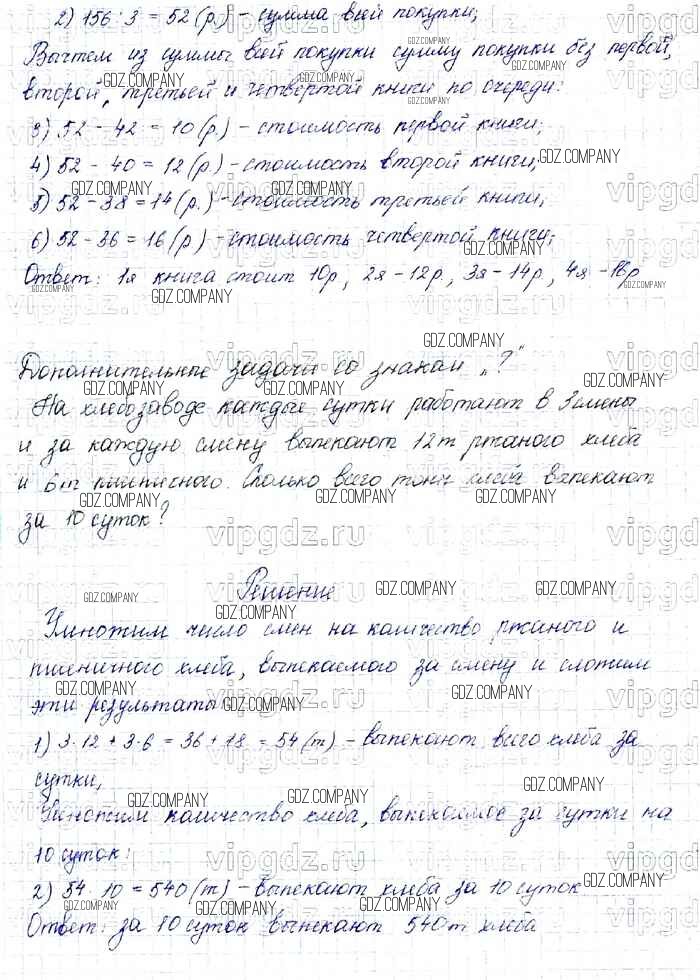 2) 156 : 3 = 52 (р.) - сумма всей покупки;
Вычтем из суммы всей покупки сумму покупки без первой,
второй, третьей и четвертой книги по очереди:
3) 52 - 42 = 10 (р.) - стоимость первой книги;
4) 52 - 40 = 12 (р.) - стоимость второй книги;
5) 52 - 38 = 14 (р.) - стоимость третьей книги;
6) 52 - 36 = 16 (р) - стоимость четвертой книги;
Ответ: 1я книга стоит 10р, 2я - 12р., 3я - 14р., 4я - 16р
Дополнительные задачи со знаком „?"
На хлебозаводе каждые сутки работают в 3 смены
и за каждую смену выпекают 12т ржаного хлеба
и 6т пшеничного. Сколько всего тонн хлеба выпекают
за 10 суток?
Решение
Умножим число смен на количество ржаного и
пшеничного хлеба, выпекаемого за смену и сложим
эти результаты:
1) 3 · 12 + 3 · 6 = 36 + 18 = 54 (т) - выпекают всего хлеба за
сутки,
Умножим количество хлеба, выпекаемое за сутки на
10 суток:
2) 54 · 10 = 540 (т) - выпекают хлеба за 10 суток
Ответ: за 10 суток выпекают 540т хлеба
GDZ.COMPANY
vipgdz.ru